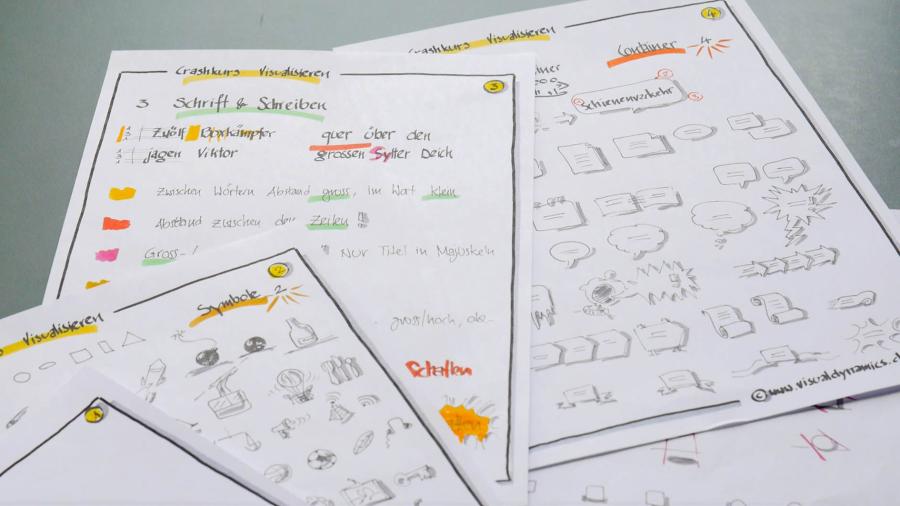 Crashkurs Visualisieren
3
3 Schrift & Schreiben
Zwölf Boxkämpfer quer über den
jagen Viktor grossen Sylter Deich
Zwischen Wörtern Abstand gross, im Wort klein
Abstand zwischen den Zeilen
Gross- Nur Titel in Majuskeln
gross/hoch,
Schatten
Crashkurs Visualisieren
4
Container 4
Schienenverkehr
©www.visualdynamics.c
Visualisieren
2
Symbole 2
1